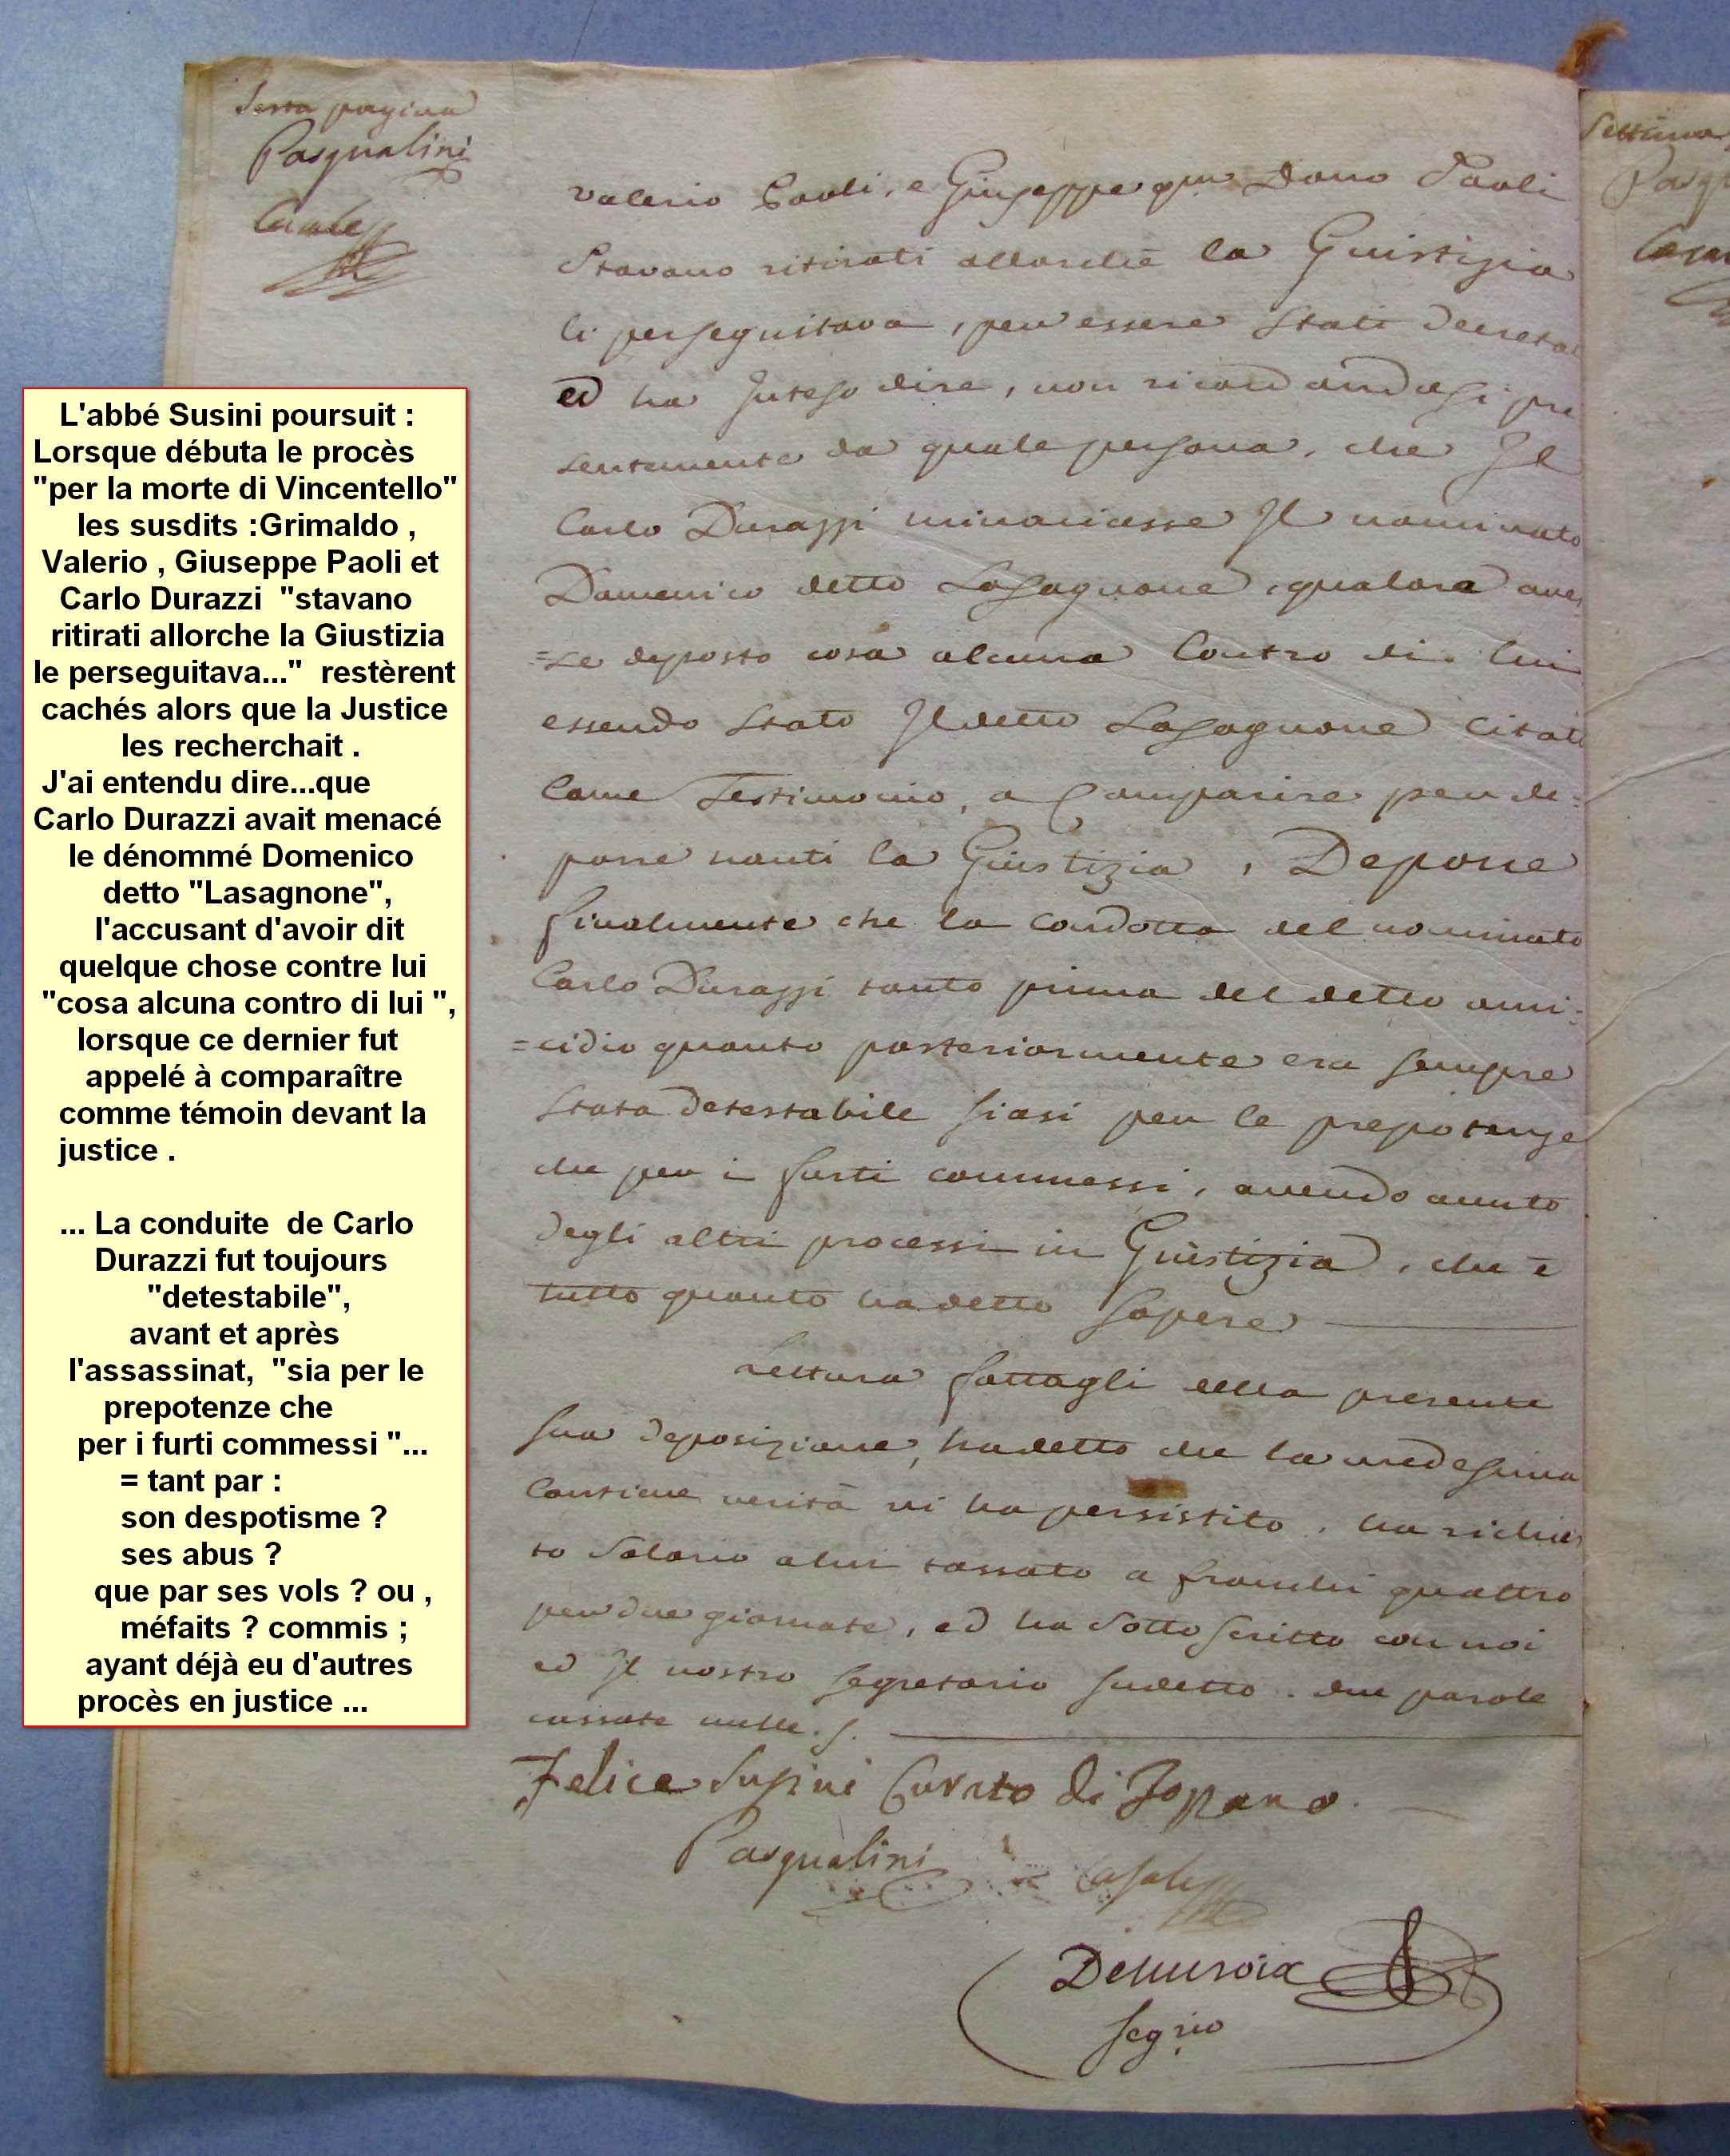 Sesta pagina
Pasqualini
Casale
Valerio Paoli, e Giuseppe qm Dono Paoli
Stavano ritirati allorchè la Giustizia
li perseguitava, per essere stati decreta
ed ha Inteso dire, non ricordandosi pre
sentemente da quale persona, che Il
Carlo Durazzi minaciasse Il nominato
Domenico detto Lasagnone, qualora aves
=se deposto cosa alcuna Contro di lui
essendo stato Il detto Lasagnone Citat
Come Testimonio, a Comparire per de=
porre nanti la Giustizia, Depone
finalmente che la Condotta del nominato
Carlo Durazzi tanto prima del detto omi=
=cidio quanto posteriormente era sempre
stata detestabile siasi per le prepotenze
che per i furti commessi, avendo avuto
degli altri processi in Giustizia, che è
tutto quanto ha detto sapere
Lettura fattagli della presente
sua deposizione, ha detto che la medesima
Contiene verità vi ha persistito, ha richies
to Salario a lui tassato a franchi quattro
per due giornate, ed ha Sottoscritto con noi
ed Il nostro segretario sudetto. due parole
cassate nulle.
Felice Susini Curato di Zoppano.
Pasqualini
Casale
Segrio
Settima
Pasq
Casa
L'abbé Susini poursuit :
Lorsque débuta le procès
"per la morte di Vincentello"
les susdits :Grimaldo ,
Valerio , Giuseppe Paoli et
Carlo Durazzi "stavano
ritirati allorche la Giustizia
le perseguitava..." restèrent
cachés alors que la Justice
les recherchait .
J'ai entendu dire...que
Carlo Durazzi avait menacé
le dénommé Domenico
detto "Lasagnone",
l'accusant d'avoir dit
quelque chose contre lui
"cosa alcuna contro di lui ",
lorsque ce dernier fut
appelé à comparaître
comme témoin devant la
justice .
... La conduite de Carlo
Durazzi fut toujours
"detestabile",
avant et après
l'assassinat, "sia per le
prepotenze che
per i furti commessi "...
= tant par :
son despotisme ?
ses abus ?
que par ses vols ? ou ,
méfaits ? commis ;
ayant déjà eu d'autres
procès en justice ...